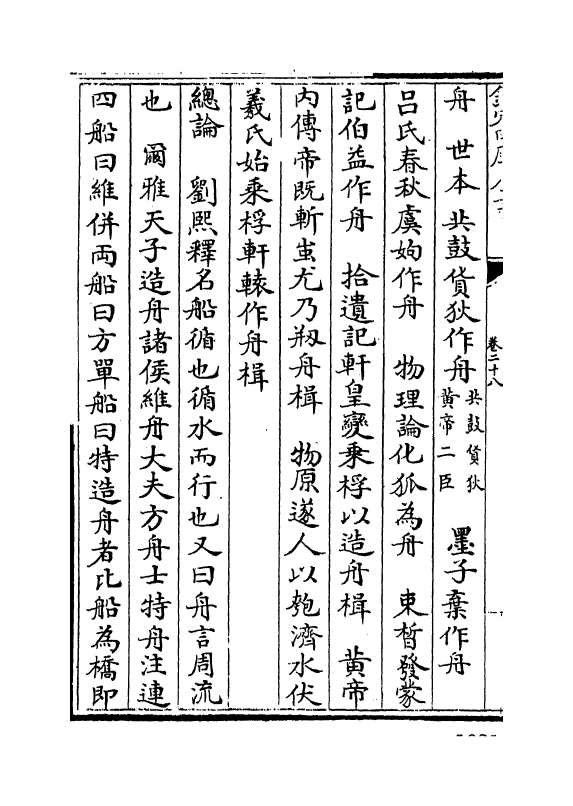 欽定四庫全書
卷二十八
舟　世本共鼓貨狄作舟共鼓貨狄黃帝二臣　墨子棄作舟
呂氏春秋虞姁作舟　物理論化狐為舟　束晳發蒙
記伯益作舟　拾遺記軒皇變乘桴以造舟楫　黃帝
內傳帝既斬蚩尤乃刱舟楫　物原遂人以匏濟水伏
羲氏始乘桴軒轅作舟楫
總論　劉熙釋名船循也循水而行也又曰舟言周流
也　爾雅天子造舟諸侯維舟大夫方舟士特舟注連
四船曰維併兩船曰方單船曰特造舟者比船為橋即